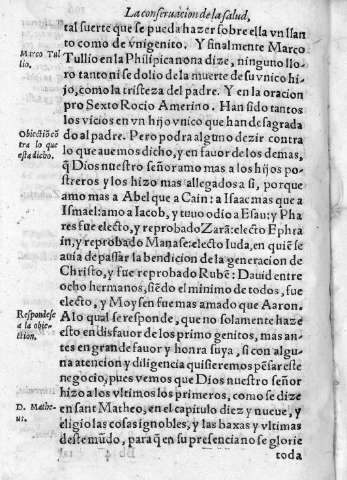 La conseruacion de la salud,
tal suerte que se pueda hazer sobre ella vn llan
to como de vnigenito. Y finalmente Marco
Marco Tul
lio.
Tullio en la Philipica nona dize, ninguno llo
ro tanto ni se dolio de la muerte de su vnico hi
jo, como la tristeza del padre. Y en la oracion
pro Sexto Rocio Amerino. Han sido tantos
los vicios en vn hijo vnico que han desagrada
do al padre. Pero podra alguno dezir contra
Obiectiō cō
tra lo que
esta dicho.
lo que auemos dicho, y en fauor de los demas,
q̃ Dios nuestro señor amo mas a los hijos po-
streros y los hizo mas allegados a si, porque
amo mas a Abel que a Cain: a Isaac mas que a
Ismael: amo a Iacob, y tuuo odio a Esau: y Pha
res fue electo, y reprobado Zarã: electo Ephra
in, y reprobado Manase: electo Iuda, en quiē se
auia de passar la bendicion de la generacion de
Christo, y fue reprobado Rubē: Dauid entre
ocho hermanos, siēdo el minimo de todos, fue
electo, y Moysen fue mas amado que Aaron.
Respondese
a la obie-
ction.
A lo qual se responde, que no solamente haze
esto en disfauor de los primo genitos, mas an-
tes en grande fauor y honra suya, si con algu-
na atencion y diligencia quisieremos pēsar este
negocio, pues vemos que Dios nuestro señor
hizo a los vltimos los primeros, como se dize
D. Mathe-
ui.
en sant Matheo, en el capitulo diez y nueue, y
eligio las cosas ignobles, y las baxas y vltimas
deste mūdo, para q̃ en su presencia no se glorie
toda